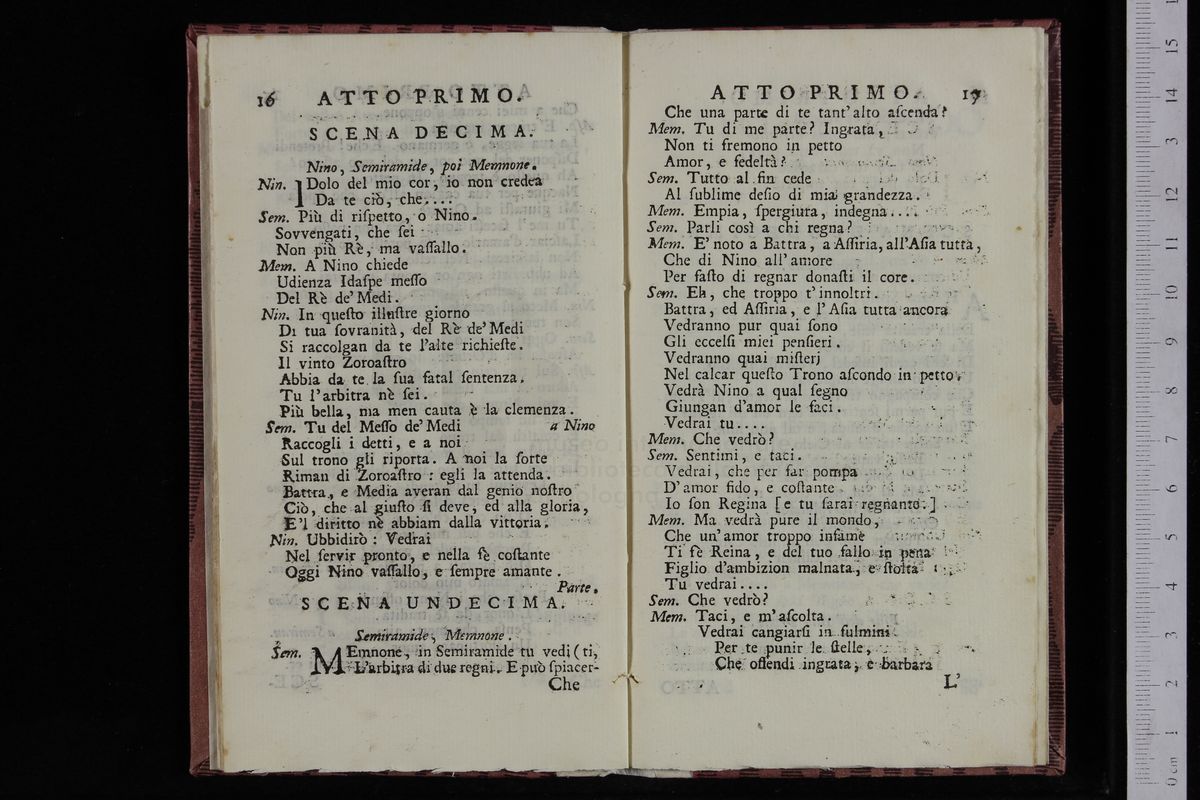 16 ATTO PRIMO.
SCENA DECIMA.
Nino, Semiramide, poi Memnone.
Nin. IDolo del mio cor, io non credea
Da te ciò, che....
Sem. Più di riſpetto, o Nino.
Sovvengati, che ſei
Non più Rè, ma vaſſallo.
Mem. A Nino chiede
Udienza Idaſpe meſſo
Del Rè de' Medi.
Nin. In queſto illuſtre giorno
Di tua ſovranità, del Rè de' Medi
Si raccolgan da te l'alte richieſte.
Il vinto Zoroaſtro
Abbia da te la ſua fatal ſentenza.
Tu l'arbitra nè ſei.
Più bella, ma men cauta è la clemenza.
Sem. Tu del Meſſo de' Medi a Nino
Raccogli i detti, e a noi
Sul trono gli riporta. A noi la ſorte
Riman di Zoroaſtro : egli la attenda.
Battra, e Media averan dal genio noſtro
Ciò, che al giuſto ſi deve, ed alla gloria,
E'l diritto nè abbiam dalla vittoria.
Nin. Ubbidirò : Vedrai
Nel ſervir pronto, e nella fè coſtante
Oggi Nino vaſſallo, e ſempre amante.
Parte.
SCENA UNDECIMA.
Semiramide, Memnone.
Sem. MEmnone, in Semiramide tu vedi (ti,
L'arbitra di due regni. E può ſpiacer-
Che
ATTO PRIMO. 17
Che una parte di te tant' alto aſcenda?
Mem. Tu di me parte? Ingrata,
Non ti fremono in petto
Amor, e fedeltà?
Sem. Tutto al fin cede
Al ſublime deſio di mia grandezza.
Mem. Empia, ſpergiura, indegna....
Sem. Parli così a chi regna?
Mem. E' noto a Battra, a Aſſiria, all'Aſia tutta,
Che di Nino all' amore
Per faſto di regnar donaſti il core.
Sem. Eh, che troppo t' innoltri.
Battra, ed Aſſiria, e l' Aſia tutta ancora
Vedranno pur quai ſono
Gli eccelſi miei penſieri.
Vedranno quai miſterj
Nel calcar queſto Trono aſcondo in petto.
Vedrà Nino a qual ſegno
Giungan d'amor le faci.
Vedrai tu....
Mem. Che vedrò?
Sem. Sentimi, e taci.
Vedrai, che per far pompa
D' amor fido, e coſtante
Io ſon Regina [e tu ſarai regnante.]
Mem. Ma vedrà pure il mondo,
Che un' amor troppo infame
Ti fè Reina, e del tuo fallo in pena
Figlio d'ambizion malnata, e ſtolta
Tu vedrai....
Sem. Che vedrò?
Mem. Taci, e m' aſcolta.
Vedrai cangiarſi in fulmini
Per te punir le ſtelle,
Che offendi ingrata, e barbara
L'